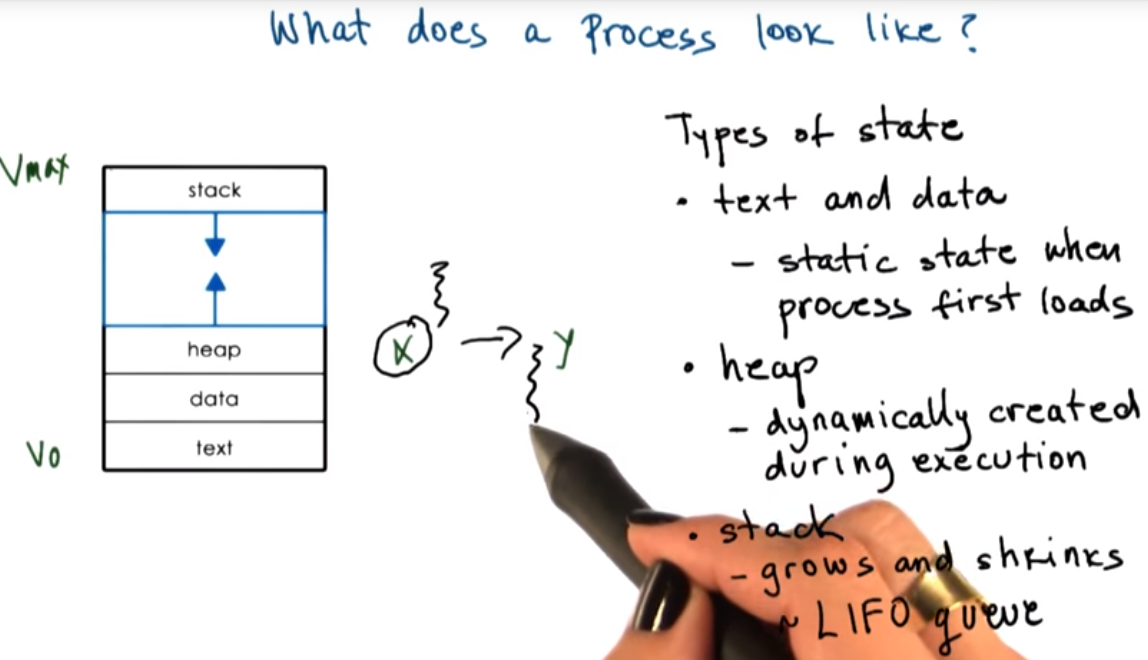 What does a Process look like?
Vmax
stack
heap
data
text
V0
X
y
Types of state
• text and data
- static state when
process first loads
• heap
- dynamically created
during execution
• stack
- grows and shrinks
~ LIFO queue